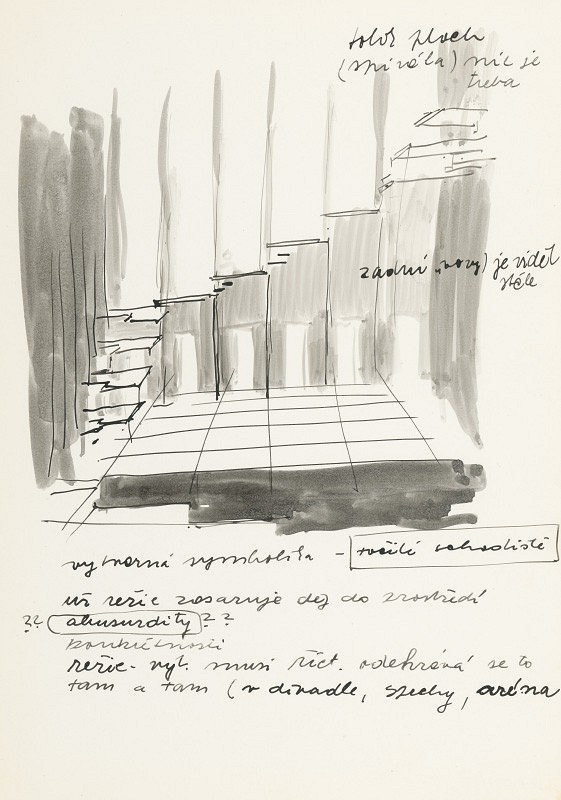 (spirála) nic je
třeba
zadní je vidět
stále
výtvarná symbolika - točité schodiště
už režie zasazuje děj do prostředí
?? absurdity ??
konkrétnosti
režie - výt. musí říct. odehrává se to
tam a tam (v divadle, šachy, aréna